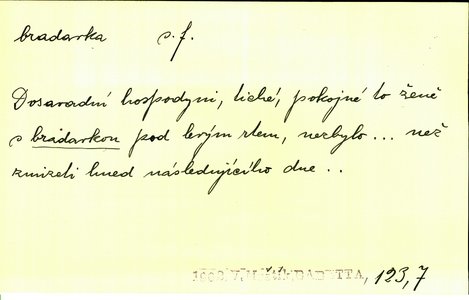 bradavka s. f.
Dosavadní hospodyni, tiché, pokojné to ženě
s bradavkou pod levým rtem, nezbylo... než
zmizeti hned následujícího dne..
BABETTA, 123,7